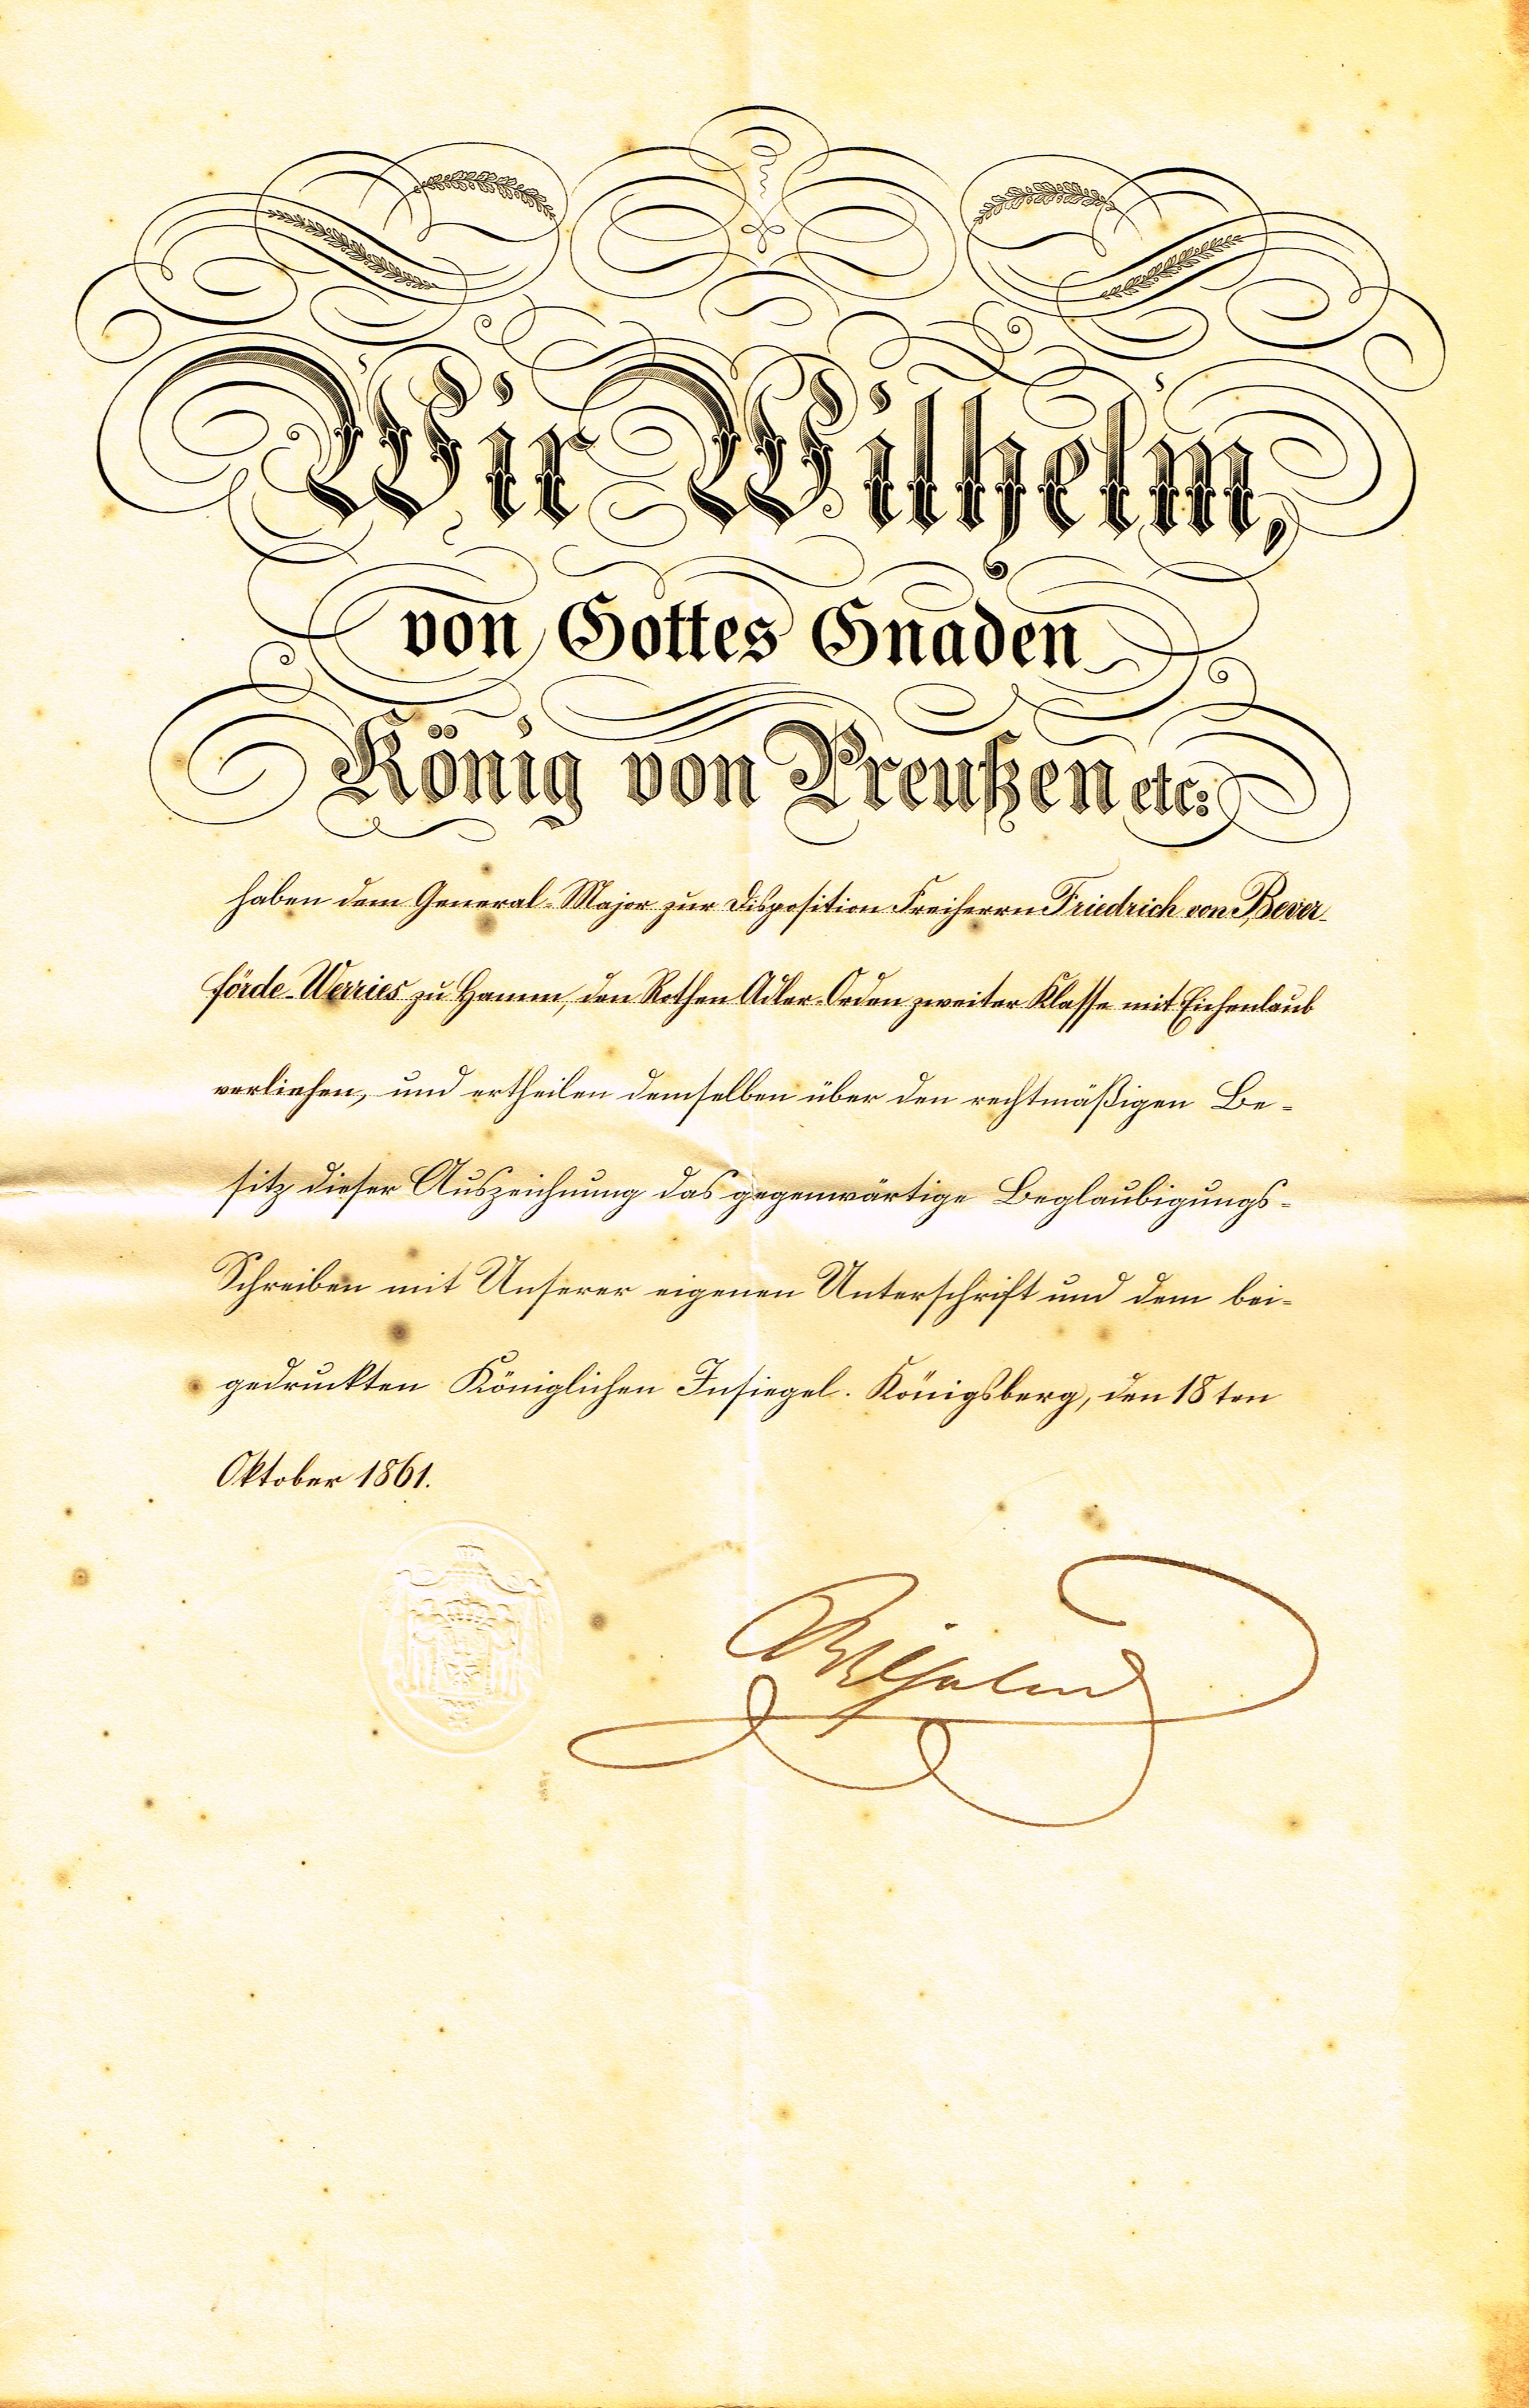 Wir Wilhelm,
von Gottes Gnaden
König von Preußen etc:
haben dem General-Major zur Disposition Freiherrn Friedrich von Bever-
förde-Werries zu Hamm, den Rothen Adler-Orden zweiter Klasse mit Eichenlaub
verliehen, und ertheilen demselben über den rechtmäßigen Be-
sitz dieser Auszeichnung das gegenwärtige Beglaubigungs-
Schreiben mit Unserer eigenen Unterschrift und dem bei-
gedruckten Königlichen Insiegel. Königsberg, den 18 ten
Oktober 1861.
Wilhelm